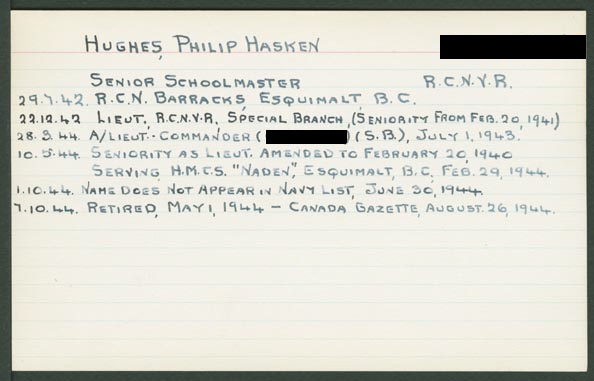 HUGHES, PHILIP HASKEN
SENIOR SCHOOLMASTER R.C.N.V.R.
29.7.42. R.C.N. BARRACKS, ESQUIMALT, B.C.
22.12.42 LIEUT, R.C.N.V.R, SPECIAL BRANCH, (SENIORITY FROM FEB. 20, 1941)
28.3.44. A/LIEUT.-COMMANDER ( ) (S.B.), JULY 1, 1943.
10.5.44. SENIORITY AS LIEUT. AMENDED TO FEBRUARY 20, 1940
SERVING, H.M.C.S. "NADEN", ESQUIMALT, B.C, FEB. 29, 1944.
1.10.44. NAME DOES NOT APPEAR IN NAVY LIST, JUNE 30, 1944.
7.10.44. RETIRED, MAY 1, 1944 - CANADA GAZETTE, AUGUST 26, 1944.